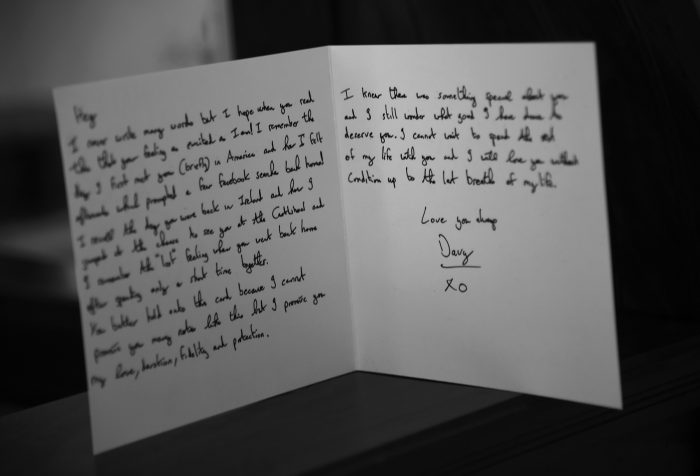 Hey
I never write many words but I hope when you read
this that your feeling as excited as I am! I remember the
day I first met you (briefly) in America and how I felt
afterwards which prompted a few facebook searches back home!
I recall the day you were back in Ireland and how I
jumped at the chance to see you at the Cathedral and
I remember the "lost" feeling when you went back home
after spending only a short time together.
You better hold onto this card because I cannot
promise you many notes like this but I promise you
my love, devotion, fidelity and protection.
I knew there was something special about you
and I still wonder what good I have done to
deserve you. I cannot wait to spend the rest
of my life with you and I will love you without
condition up to the last breath of my life.
Love you always
Davy
XO